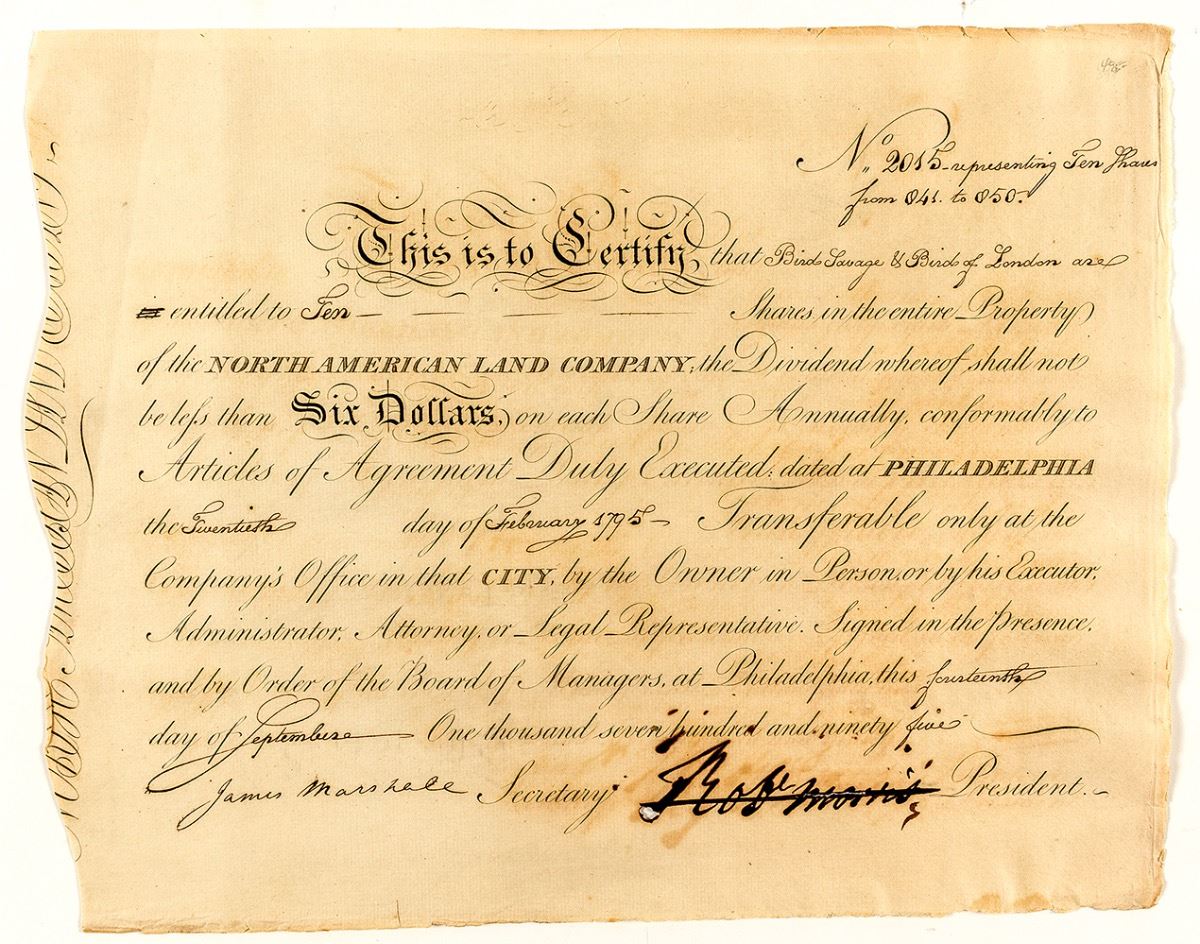 No. 2015 - representing Ten Shares
from 841. to 850.
This is to Certify, that Bird Savage & Bird of London are
entitled to Ten Shares in the entire Property
of the NORTH AMERICAN LAND COMPANY; the Dividend whereof shall not
be less than Six Dollars, on each Share Annually, conformably to
Articles of Agreement Duly Executed; dated at PHILADELPHIA
the Twentieth day of February 1795 - Transferable only at the
Company's Office in that CITY, by the Owner in Person, or by his Executor,
Administrator, Attorney, or Legal Representative. Signed in the Presence,
and by Order of the Board of Managers, at Philadelphia, this fourteenth
day of September One thousand seven hundred and ninety five
James Marshall Secretary Robt Morris President.